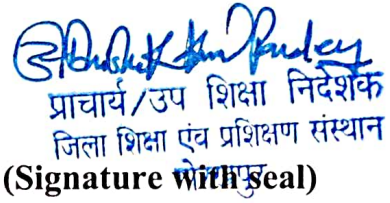 प्राचार्य/उप शिक्षा निदेशक
जिला शिक्षा एंव प्रशिक्षण संस्थान
(Signature with seal)